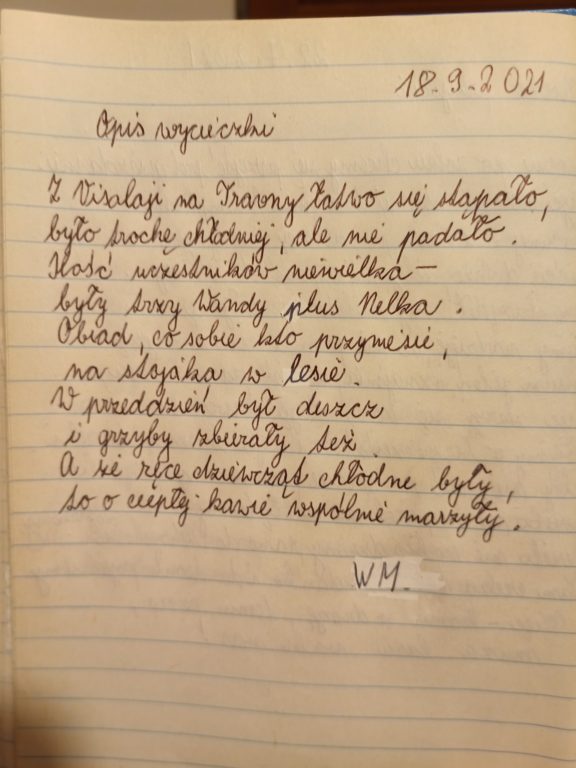 18-9-2021
Opis wycieczki
Z Visalaji na Travny łatwo się stąpało,
było trochę chłodniej, ale nie padało.
Ilość uczestników niewielka –
były trzy Wandy plus Nelka.
Obiad, co sobie kto przyniesie,
na stojáka w lesie.
W przeddzień był deszcz
i grzyby zbierały też.
A że ręce dziewcząt chłodne były,
to o ciepłej kawie wspólnie marzyły.
WM.